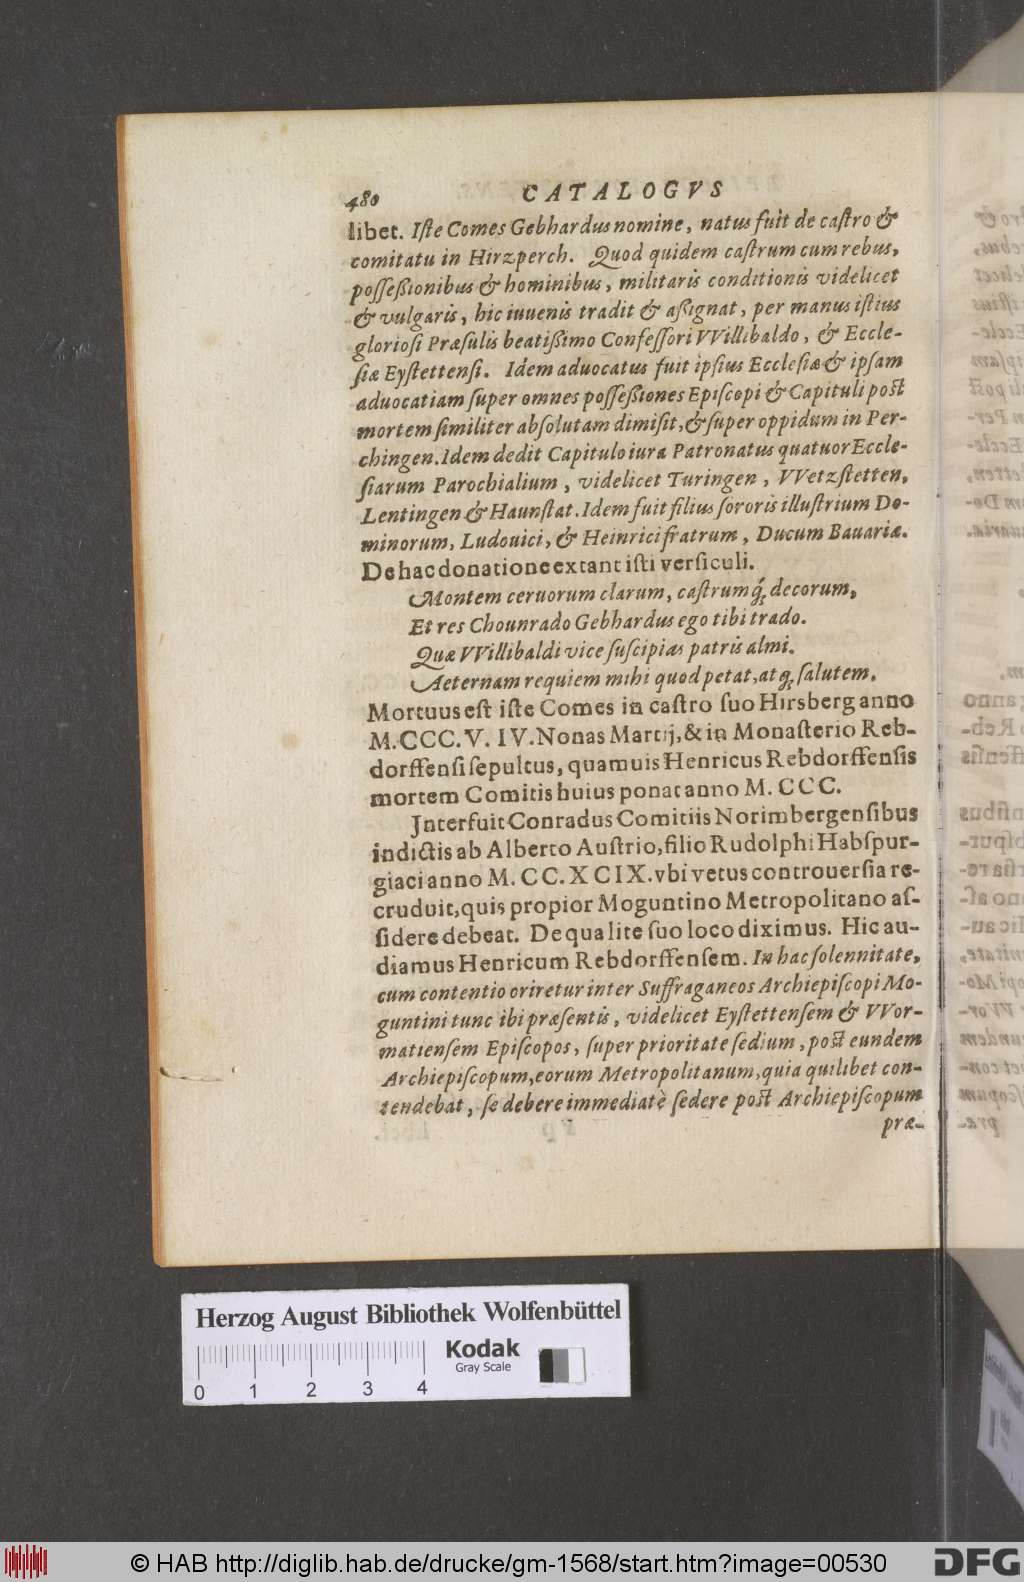 480 CATALOGVS
libet. Iſte Comes Gebhardus nomine, natus fuit de caſtro &
comitatu in Hirzperch. Quod quidem caſtrum cum rebus,
poſſeßionibus & hominibus, militaris conditionis videlicet
& vulgaris, hic iuuenis tradit & aßignat, per manus iſtius
glorioſi Præſulis beatißimo Confeſſori VVillibaldo, & Eccle-
ſiæ Eyſtettenſi. Idem aduocatus fuit ipſius Eccleſiæ & ipſam
aduocatiam ſuper omnes poſſeßiones Epiſcopi & Capituli poſt
mortem ſimiliter abſolutam dimiſit, & ſuper oppidum in Per-
chingen. Idem dedit Capitulo iura Patronatus quatuor Eccle-
ſiarum Parochialium, videlicet Turingen, VVetzſtetten,
Lentingen & Haunſtat. Idem fuit filius ſororis illuſtrium Do-
minorum, Ludouici, & Heinrici fratrum, Ducum Bauariæ.
De hac donatione extant iſti verſiculi.
Montem ceruorum clarum, caſtrumq́; decorum,
Et res Chounrado Gebhardus ego tibi trado.
Quæ VVillibaldi vice ſuſcipias patris almi.
Aeternam requiem mihi quod petat, atq; ſalutem.
Mortuus eſt iſte Comes in caſtro ſuo Hirsberg anno
M.CCC.V. IV. Nonas Martij, & in Monaſterio Reb-
dorffenſi ſepultus, quamuis Henricus Rebdorffenſis
mortem Comitis huius ponat anno M. CCC.
Interfuit Conradus Comitiis Norimbergenſibus
indictis ab Alberto Auſtrio, filio Rudolphi Habſpur-
giaci anno M. CC. XCIX. vbi vetus controuerſia re-
cruduit, quis propior Moguntino Metropolitano aſ-
ſidere debeat. De qua lite ſuo loco diximus. Hic au-
diamus Henricum Rebdorffenſem. In hac ſolennitate,
cum contentio oriretur inter Suffraganeos Archiepiſcopi Mo-
guntini tunc ibi præſentis, videlicet Eyſtettenſem & VVor-
matienſem Epiſcopos, ſuper prioritate ſedium, poſt eundem
Archiepiſcopum, eorum Metropolitanum, quia quilibet con-
tendebat, ſe debere immediatè ſedere poſt Archiepiſcopum
præ-
Herzog August Bibliothek Wolfenbüttel
Kodak
Gray Scale
0 1 2 3 4
© HAB http://diglib.hab.de/drucke/gm-1568/start.htm?image=00530
DFG